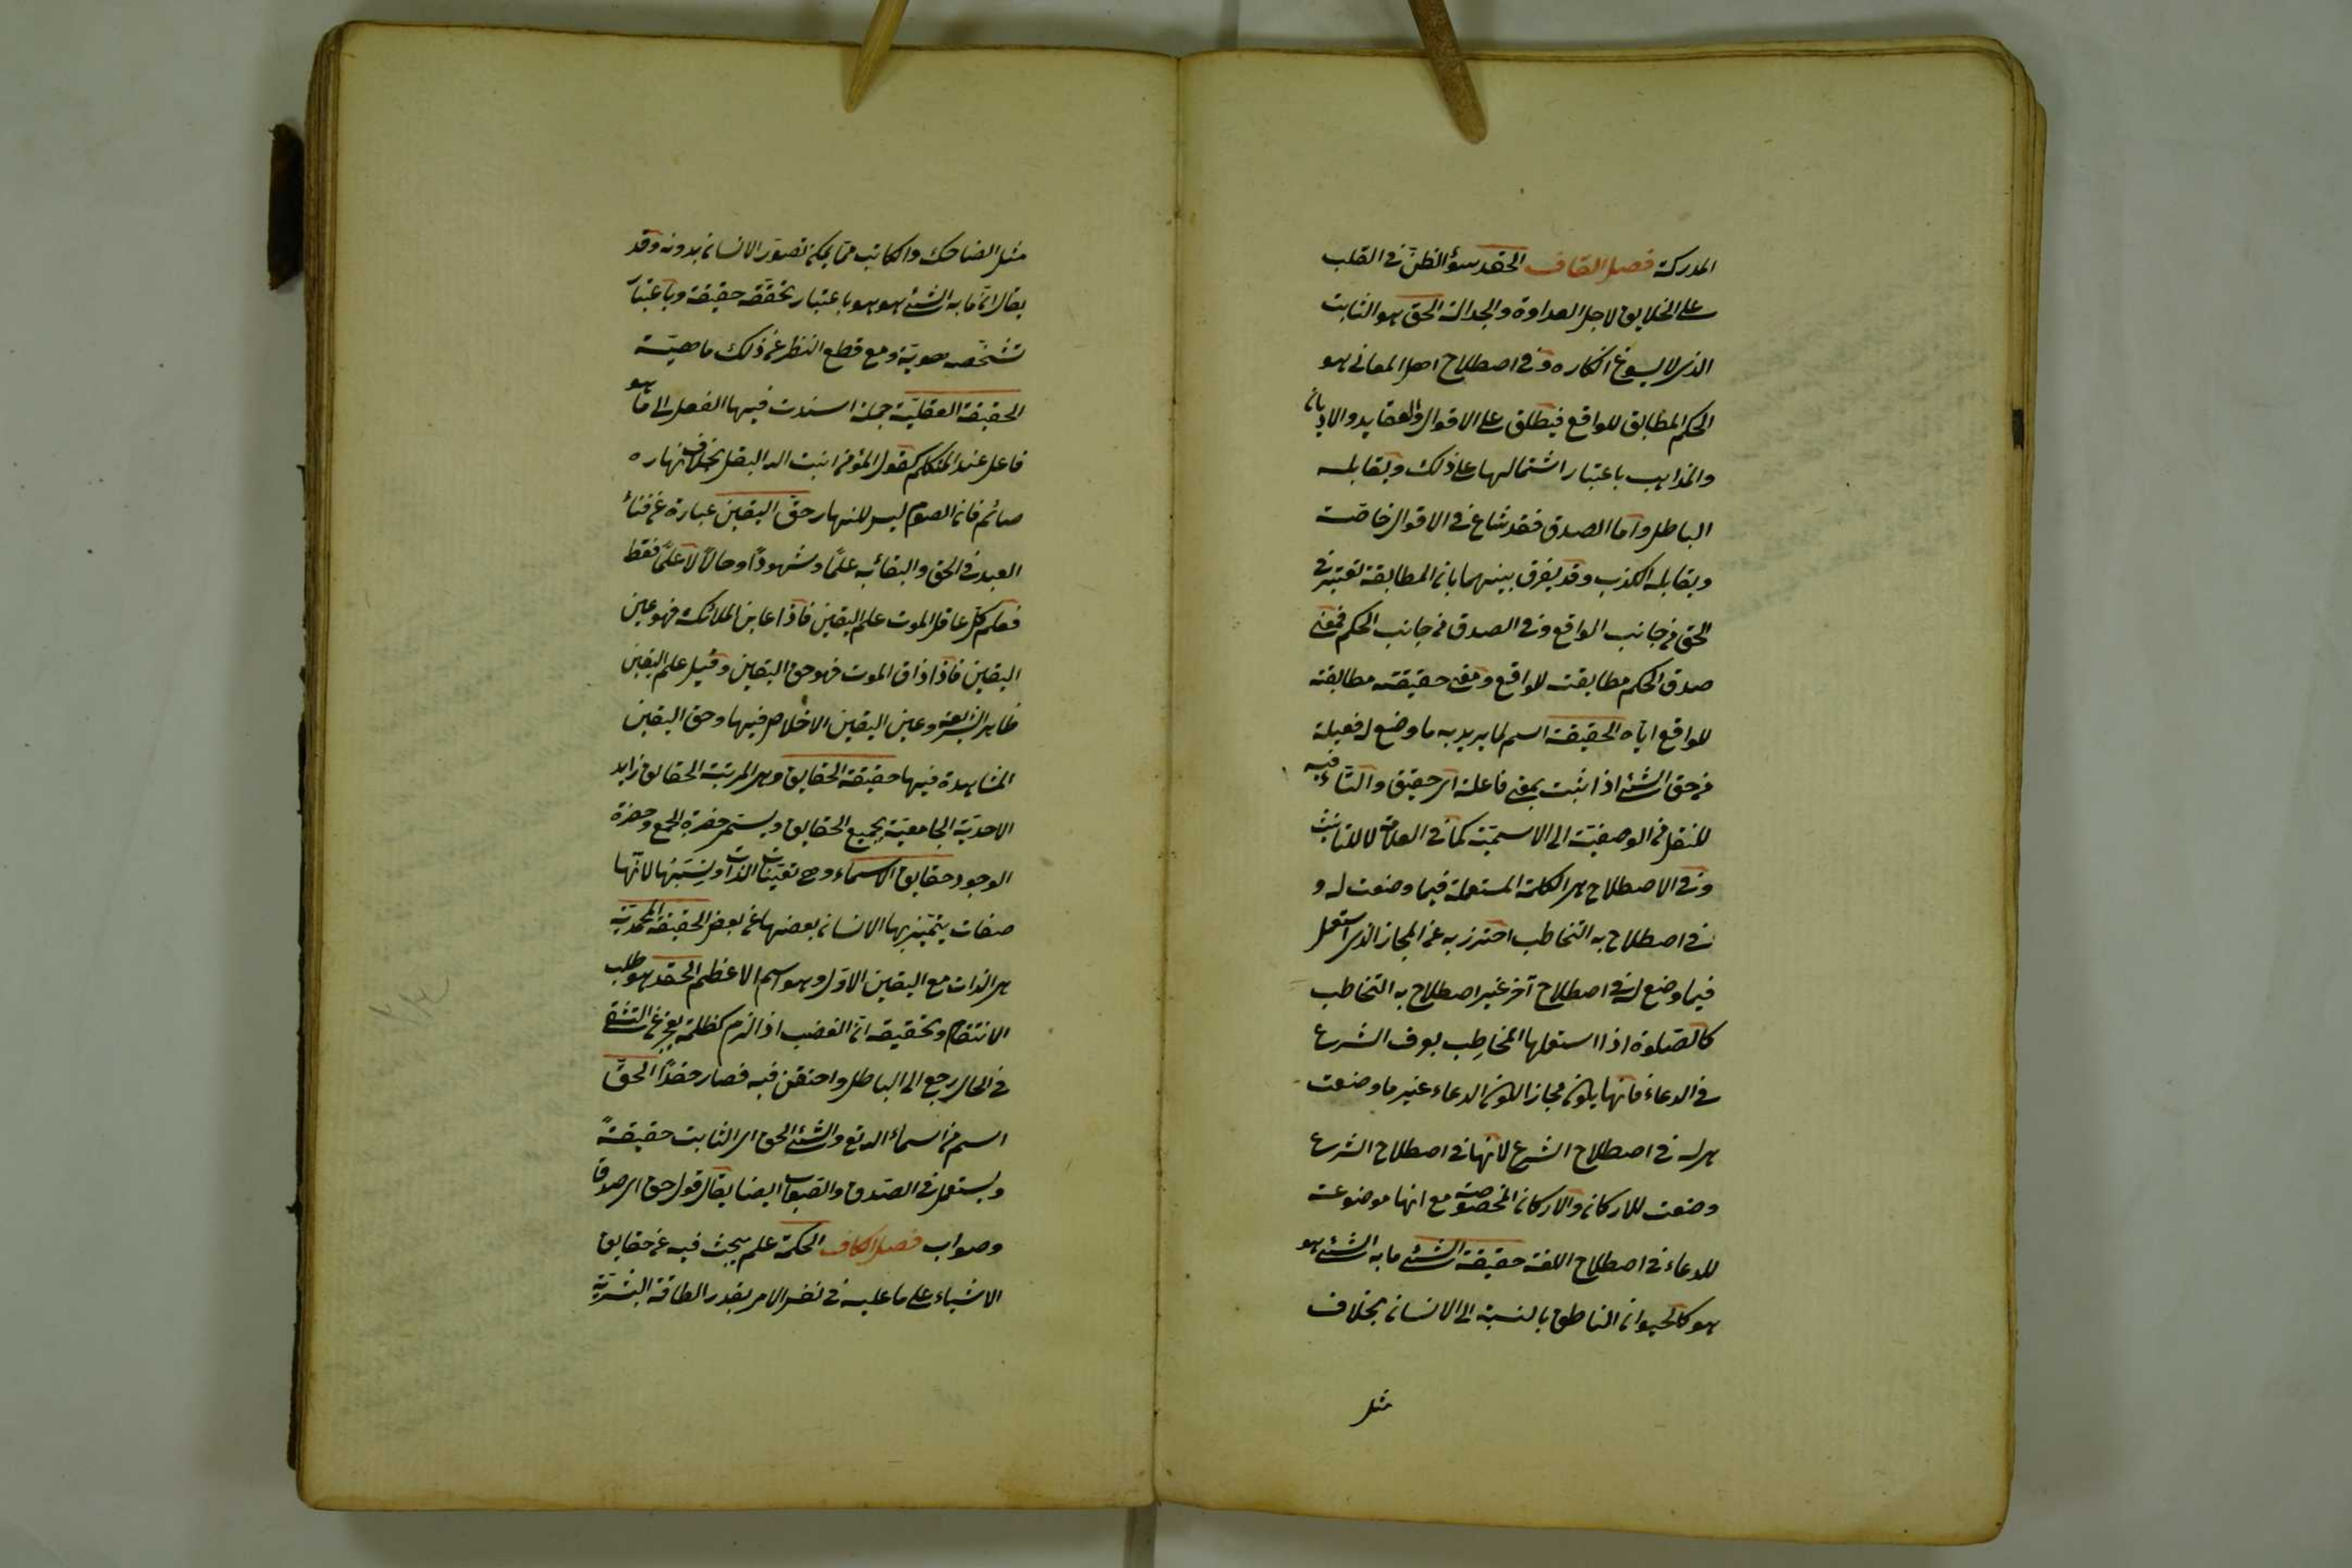 المدركة فصل القاف الحقد سوء الظن فى القلب
على الخلايق لاجل العداوة والجدالة الحق هو الثابت
الذى لا يسوغ انكاره وفى اصطلاح اهل المعانى هو
الحكم المطابق للواقع فيطلق على الاقوال والعقايد والاديان
والمذاهب باعتبار اشتمالها على ذلك ويقابله
الباطل واما الصدق فقد شاع فى الاقوال خاصة
ويقابله الكذب وقد يفرق بينهما بان المطابقة تعتبر فى
الحق من جانب الواقع وفى الصدق من جانب الحكم فمعنى
صدق الحكم مطابقته للواقع ومعنى حقيقته مطابقته
للواقع اياه الحقيقة اسم لما يريد به ما وضع له فعيلة
من حق الشئ اذا ثبت بمعنى فاعلة اى حقيق والتاء فيه
للنقل من الوصفية الى الاسمية كما فى العلامة لا للتانيث
وفى الاصطلاح هى الكلمة المستعملة فيما وضعت له و
فى اصطلاح به التخاطب احترز به عن المجاز الذى استعمل
فيما وضع له فى اصطلاح آخر غير اصطلاح به التخاطب
كالصلوة اذا استعملها المخاطِب بعرف الشرع
فى الدعاء فانها يكون مجازا لكون الدعاء غير ما وضعت
هى له فى اصطلاح الشرع لانها فى اصطلاح الشرع
وضعت للاركان والاركان المخصوصة مع انها موضوعة
للدعاء فى اصطلاح اللغة حقيقة الشئ ما به الشئ هو
هو كالحيوان الناطق بالنسبة الى الانسان بخلاف
مثل
مثل الضاحك والكاتب مما يمكن تصور الانسان بدونه وقد
يقال ان ما به الشئ هو هو باعتبار تحققه حقيقة وباعتبار
تشخصه هوية ومع قطع النظر عن ذلك ماهية
الحقيقة العقلية جملة اسندت فيها الفعل الى ما هو
فاعل عند المتكلم كقول المؤمن انبت الله البقل بخلاف نهاره
صائم فان الصوم ليس للنهار حق اليقين عبارة عن فناء
العبد فى الحق والبقاء به علمًا وشهودًا وحالًا لا علمًا فقط
فعلم كل عاقل الموت علم اليقين فاذا عاين الملائكة فهو عين
اليقين فاذا ذاق الموت فهو حق اليقين وقيل علم اليقين
ظاهر الشريعة وعين اليقين الاخلاص فيها وحق اليقين
المشاهدة فيها حقيقة الحقايق وهى المرتبة الحقايق
الاحدية الجامعية بجميع الحقايق ويسمى حضرة الجمع وحضرة
الوجود حقايق الاسماء وهى تعينات الذات ونسبتها لانها
صفات يتميز بها الانسان بعضها عن بعض الحقيقة المحمدية
هى الذات مع اليقين الاول وهو اسم الاعظم الحقد هو طلب
الانتقام وتحقيقه ان الغضب اذا لزم كظلمة بعجز عن التشفى
فى الحال رجع الى الباطل واحتقن فيه فصار حقدًا الحق
اسم من اسماء الله تع والشئ الحق اى الثابت حقيقةً
ويستعمل فى الصدق والصواب ايضا يقال قول حق اى صدق
وصواب فصل الكاف الحكمة علم يبحث فيه عن حقايق
الاشياء على ما عليه فى نفس الامر بقدر الطاقة البشرية